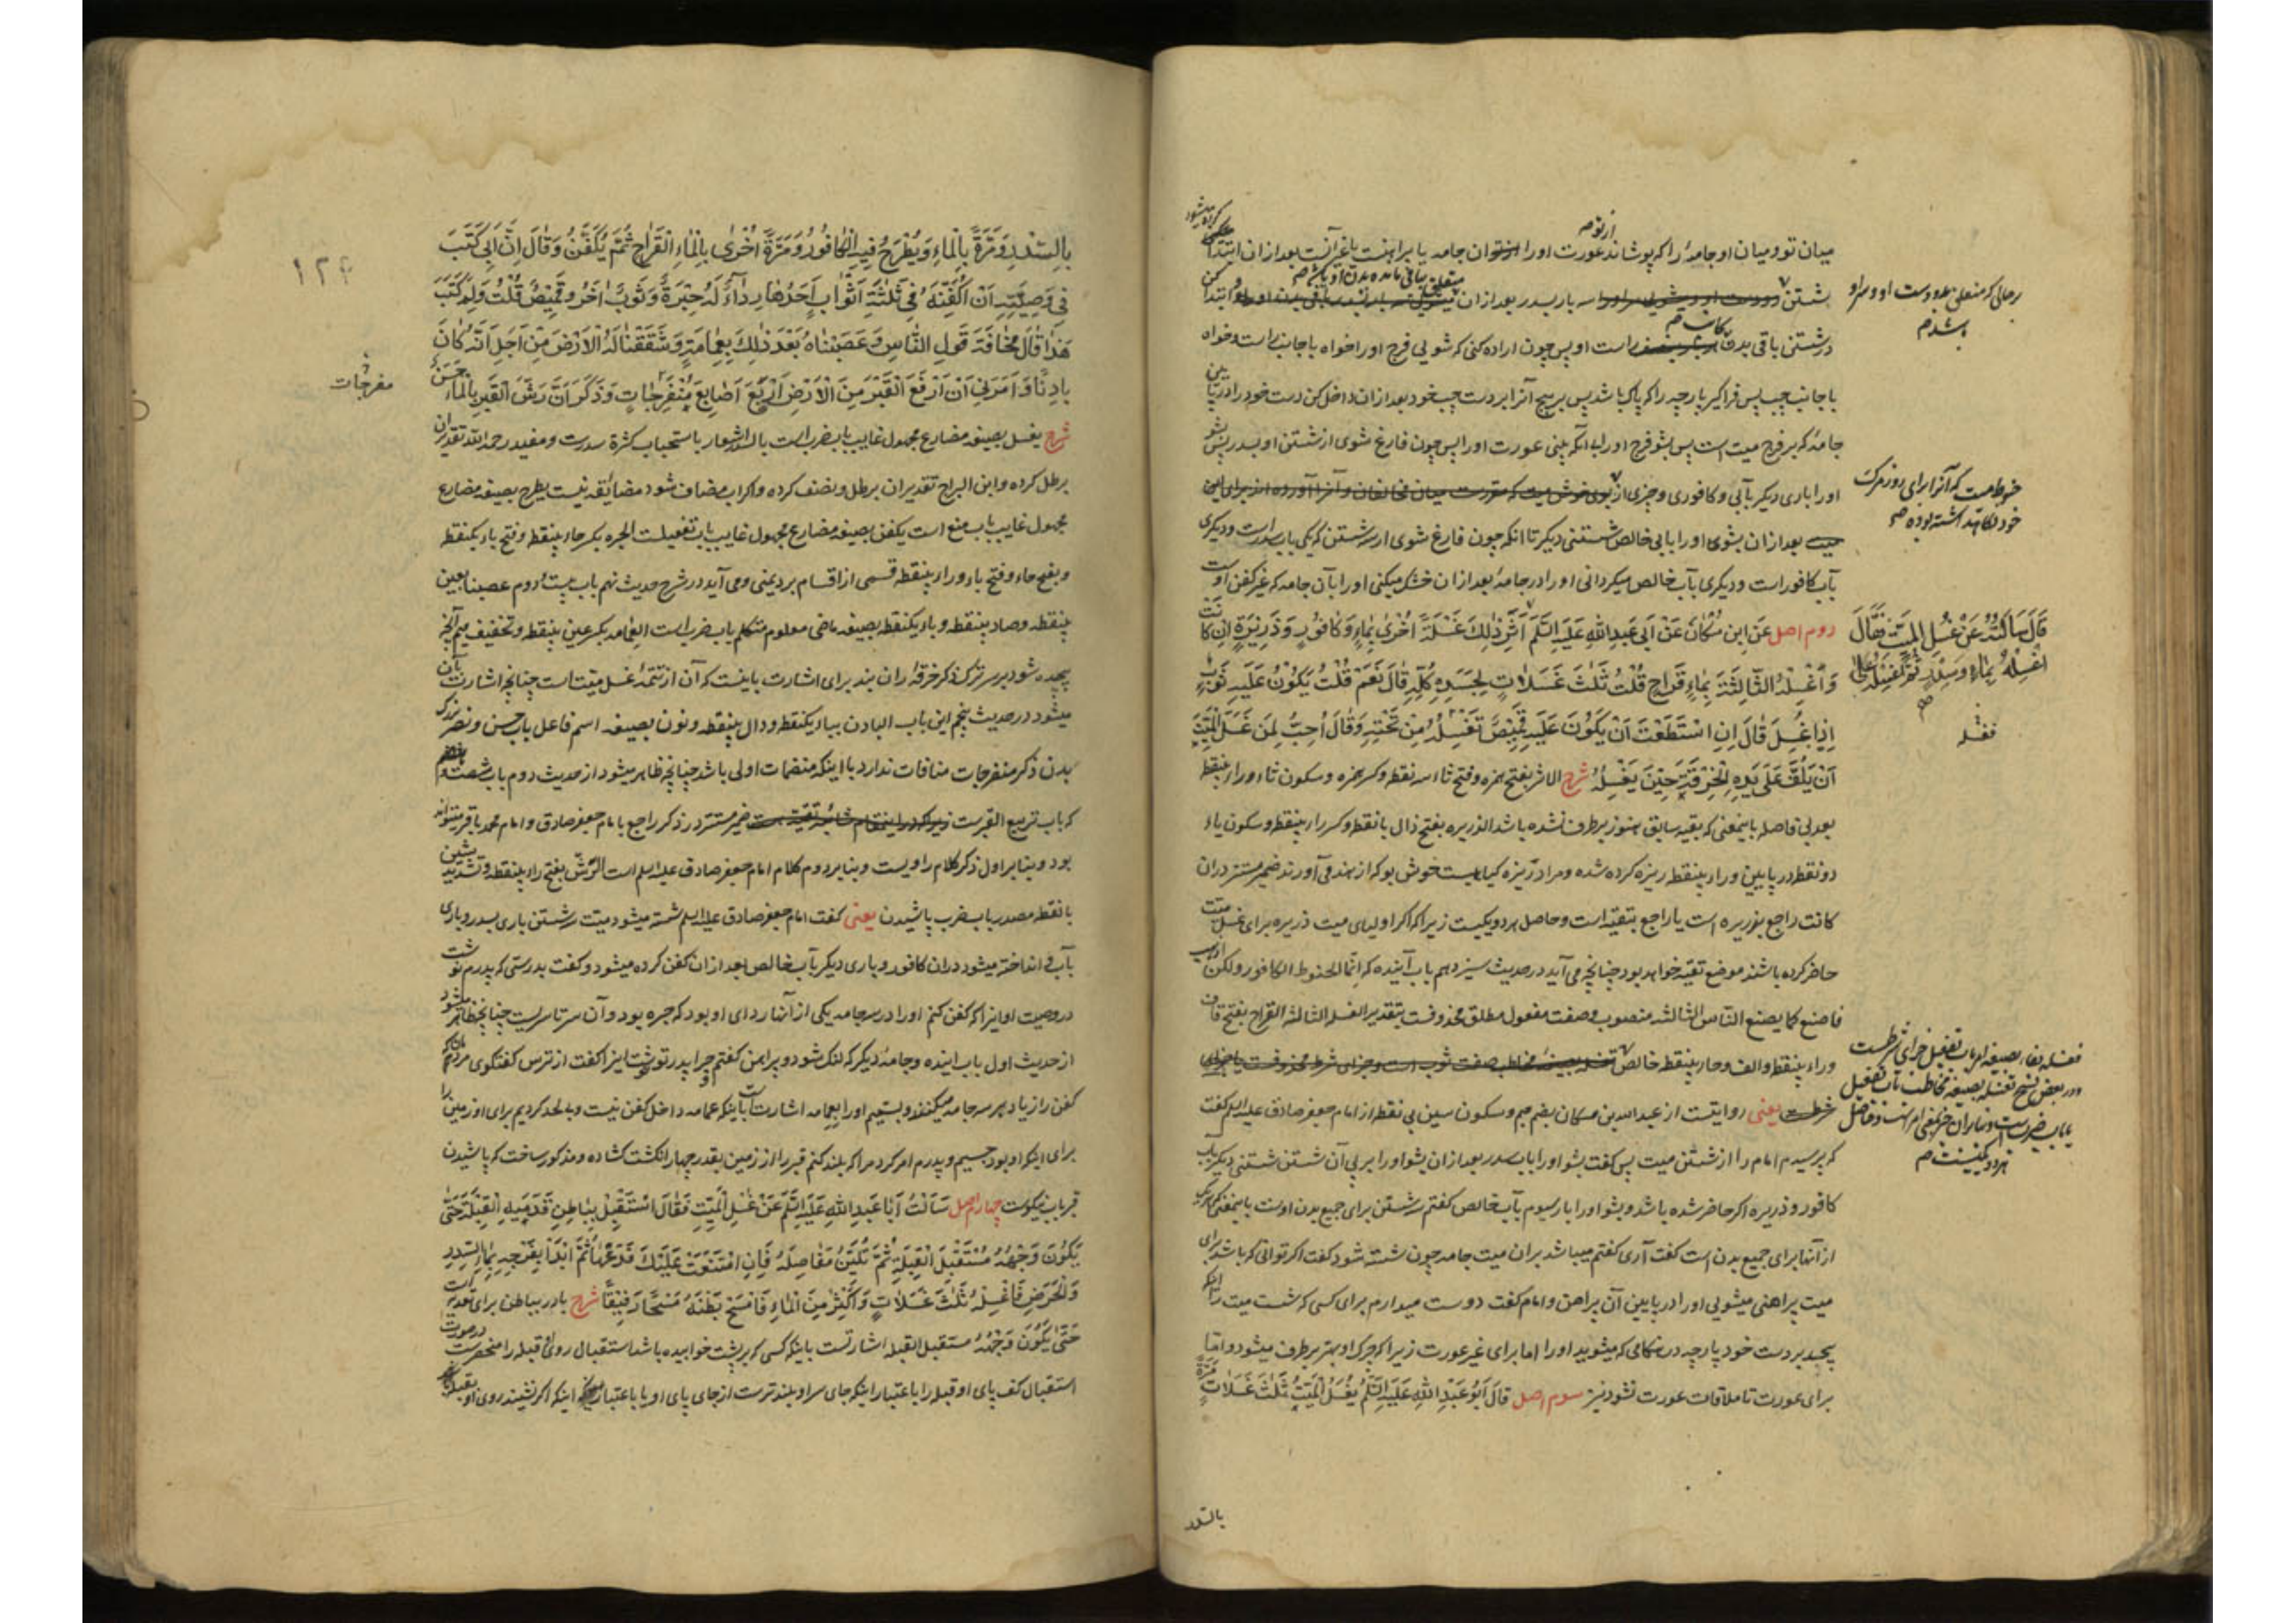 میان تو و میان او جامهٔ را که پوشاند عورت او را از تو آن جامه یا پیراهنست یا غیر آنست بعد از آن ابتدا
بشستن سه بار بسدر بعد از آن
در شستن باقی بدن راست او پس چون اراده کنی که شویی فرج او را خواه با جانب راست و خواه
با جانب چپ پس فراگیر پارچه را که پاک باشد پس بپیچ آنرا بر دست چپ خود بعد از آن داخل کن دست خود را در
جامهٔ که بر فرج میت است پس بشو فرج او را با آنکه بینی عورت او را پس چون فارغ شوی از شستن او بسدر پس بشو
او را باری دیگر بآبی و کافوری و چیزی از
بعد از آن بشوی او را بآبی خالص شستنی دیگر تا آنکه چون فارغ شوی از سه شستن که یکی بآب سدر است و دیگری
بآب کافور است و دیگری بآب خالص میگردانی او را در جامهٔ بعد از آن خشک میکنی او را بآن جامه که غیر کفن اوست
دوم اصل عَنِ ابْنِ مُسْكَانَ عَنْ أَبِي عَبْدِ اللهِ عَلَيْهِ السَّلَمُ أَثَرَ ذٰلِكَ غَسْلَةً أُخْرىٰ بِمَاءٍ وَكَافُورٍ وَذَرِيرَةٍ إِنْ كَانَتْ
وَاغْسِلْهُ الثَّالِثَةَ بِمَاءٍ قَرَاحٍ قُلْتُ ثَلٰثَ غَسَلَاتٍ لِجَسَدِهِ كُلِّهِ قَالَ نَعَمْ قُلْتُ يَكُونُ عَلَيْهِ ثَوْبٌ
إِذَا غُسِلَ قَالَ إِنِ اسْتَطَعْتَ أَنْ يَكُونَ عَلَيْهِ قَمِيصٌ تَغْسِلُهُ مِنْ تَحْتِهِ وَقَالَ أُحِبُّ لِمَنْ غَسَلَ الْمَيِّتَ
أَنْ يَلُفَّ عَلىٰ يَدِهِ الْخِرْقَةَ حِينَ يَغْسِلُهُ شرح الاثر بفتح همزه و فتح ثاء سه نقطه و کسر همزه و سکون ثاء و راء بینقطه
بعد بی فاصله باینمعنی که بقیه سابق هنوز برطرف نشده باشد الذریره بفتح ذال با نقطه و کسر راء بینقطه و سکون یاء
دو نقطه در پایین و راء بینقطه ریزه کرده شده و مراد ریزه گیاهیست خوش بو که از هند می آورند ضمیر مستتر در ان
کانت راجع بذریره است یا راجع بتقیه است و حاصل هر دو یکیست زیرا که اگر اولیای میت ذریره برای غسل میت
حاضر کرده باشند موضع تقیه خواهد بود چنانچه می آید در حدیث سیزدهم باب آینده که انما الحنوط الکافور ولکن اذهب
فاصنع کما یصنع الناس الثالثه منصوب و صفت مفعول مطلق محذوفست بتقدیر الغسله الثالثه القراح بفتح قاف
وراء بینقطه و الف و حاء بینقطه خالص
یعنی روایتست از عبد الله بن مسکان بضم میم و سکون سین بی نقطه از امام جعفر صادق علیه السلم گفت
که پرسیدم امام را از شستن میت پس گفت بشو او را بآب سدر بعد از آن بشو او را بر پی آن شستن شستنی دیگر بآب
کافور و ذریره اگر حاضر شده باشد و بشو او را بار سیوم بآب خالص گفتم سه شستن برای جمیع بدن اوست باینمعنی که هر یک
از آنها برای جمیع بدن است گفت آری گفتم میباشد بر آن میت جامه چون شسته شود گفت اگر توانی که باشد برای
میت پیراهنی میشویی او را در پایین آن پیراهن و امام گفت دوست میدارم برای کسی که شست میت را آنکه
پیچد بر دست خود پارچه در هنگامی که میشوید او را اما برای غیر عورت زیرا که چرک او بهتر برطرف میشود و اما
برای عورت تا ملاقات عورت نشود نیز سوم اصل قَالَ أَبُو عَبْدِ اللهِ عَلَيْهِ السَّلَمُ يُغَسَّلُ الْمَيِّتُ ثَلٰثَ غَسَلَاتٍ مَرَّةً
قَالَ سَأَلْتُهُ عَنْ غُسْلِ الْمَيِّتِ فَقَالَ
اغْسِلْهُ بِمَاءٍ وَسِدْرٍ ثُمَّ اغْسِلْهُ عَلىٰ
فغسله
بالسدر
۱۲۴
بِالسِّدْرِ وَمَرَّةً بِالْمَاءِ وَيُطْرَحُ فِيهِ الْكَافُورُ وَمَرَّةً أُخْرىٰ بِالْمَاءِ الْقَرَاحِ ثُمَّ يُكَفَّنُ وَقَالَ إِنَّ أَبِي كَتَبَ
فِي وَصِيَّتِهِ أَنْ أُكَفِّنَهُ فِي ثَلٰثَةِ أَثْوَابٍ أَحَدُهَا رِدَاءٌ لَهُ حِبَرَةٌ وَثَوْبٌ آخَرُ وَقَمِيصٌ قُلْتُ وَلِمَ كَتَبَ
هَذَا قَالَ مَخَافَةَ قَوْلِ النَّاسِ وَعَصَبْنَاهُ بَعْدَ ذٰلِكَ بِعِمَامَةٍ وَشَقَقْنَا لَهُ الْأَرْضَ مِنْ أَجْلِ أَنَّهُ كَانَ
بَادِنًا وَأَمَرَنِي أَنْ أَرْفَعَ الْقَبْرَ مِنَ الْأَرْضِ أَرْبَعَ أَصَابِعَ مُنْفَرِجَاتٍ وَذَكَرَ أَنَّ رَشَّ الْقَبْرِ بِالْمَاءِ حَسَنٌ
مفرجات
شرح یغسل بصیغه مضارع مجهول غایب باب ضرب است بالسدر اشعار باستحباب کثرة سدرست و مفید رحمه الله تقدیر آن
برطل کرده و ابن البراج تقدیر آن برطل و نصف کرده و اگر آب مضاف شود مضائقه نیست یطرح بصیغه مضارع
مجهول غایب باب منع است یکفن بصیغه مضارع مجهول غایب باب تفعیلست الحبره بکسر حاء بینقطه و فتح باء یکنقطه
و بفتح حاء و فتح باء و راء بینقطه قسمی از اقسام برد یمنی و می آید در شرح حدیث نهم باب بیست و دوم عصبنا بعین
بینقطه و صاد بینقطه و باء یکنقطه بصیغه ماضی معلوم متکلم باب ضرب است العمامه بکسر عین بینقطه و تخفیف میم آنچه
پیچیده شود بر سر ترک ذکر خرقه و ران بند برای اشارت باینست که آن از تتمهٔ غسل میت است چنانچه اشارت بآن
میشود در حدیث پنجم این باب البادن بباء یکنقطه و دال بینقطه و نون بصیغه اسم فاعل باب حسن و نصر بزرگ
بدن ذکر منفرجات منافات ندارد با اینکه منضمات اولی باشد چنانچه ظاهر میشود از حدیث دوم باب شصت و
که باب تربیع القبرست ضمیر مستتر در ذکر راجع بامام جعفر صادق و امام محمد باقر میتواند
بود و بنابر اول ذکر کلام راویست و بنابر دوم کلام امام جعفر صادق علیه السلم است الرش بفتح راء بینقطه و تشدید شین
با نقطه مصدر باب ضرب پاشیدن یعنی گفت امام جعفر صادق علیه السلم شسته میشود میت سه شستن باری بسدر و باری
بآب و انداخته میشود در آن کافور و باری دیگر بآب خالص بعد از آن کفن کرده میشود و گفت بدرستی که پدرم نوشت
در وصیت او اینرا که کفن کنم او را در سه جامه یکی از آنها ردای او بود که حبره بود و آن سرتاسریست چنانچه ظاهر میشود
از حدیث اول باب آینده و جامهٔ دیگر که لنگ شود و پیراهن گفتم چرا پدر تو نوشت اینرا گفت از ترس گفتگوی مردم
کفن را زیاد بر سه جامه میکنند و بستیم او را بعمامه اشارتست باینکه عمامه داخل کفن نیست و به لحد کردیم برای او زمین را
برای اینکه او بود جسیم و پدرم امر کرد مرا که بلند کنم قبر را از زمین بقدر چهار انگشت گشاده و مذکور ساخت که پاشیدن
قبر بآب نیکوست چهارم اصل سَأَلْتُ أَبَا عَبْدِ اللهِ عَلَيْهِ السَّلَمُ عَنْ غُسْلِ الْمَيِّتِ فَقَالَ اسْتَقْبِلْ بِبَاطِنِ قَدَمَيْهِ الْقِبْلَةَ حَتّىٰ
يَكُونَ وَجْهُهُ مُسْتَقْبِلَ الْقِبْلَةِ ثُمَّ تُلَيِّنُ مَفَاصِلَهُ فَإِنِ امْتَنَعَتْ عَلَيْكَ فَدَعْهَا ثُمَّ ابْدَأْ بِفَرْجِهِ بِمَاءِ السِّدْرِ
وَالْحُرُضِ فَاغْسِلْهُ ثَلٰثَ غَسَلَاتٍ وَأَكْثِرْ مِنَ الْمَاءِ فَامْسَحْ بَطْنَهُ مَسْحًا رَفِيقًا شرح باء در بباطن برای تعدیه است
حَتّىٰ يَكُونَ وَجْهُهُ مستقبل القبله اشارتست باینکه کسی که بر پشت خوابیده باشد استقبال روی قبله را منحصرست در صورت
استقبال کف پای او قبله را باعتبار اینکه جای سر او بلندترست از جای پای او یا باعتبار اینکه اگر نشیند روی او بقبله